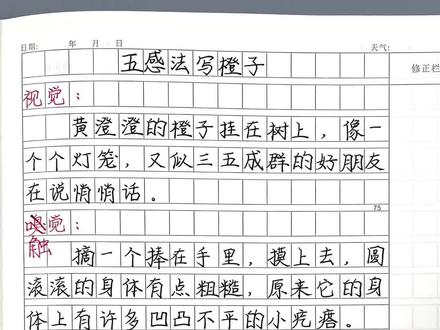 日期: 年 月 日 天气:
五感法写橙子
修正栏
视觉：
黄澄澄的橙子挂在树上，像一
个个灯笼，又似三五成群的好朋友
在说悄悄话。
75
嗅觉：
触
摘一个捧在手里，摸上去，圆
滚滚的身体有点粗糙，原来它的身
体上有许多凹凸不平的小疙瘩。